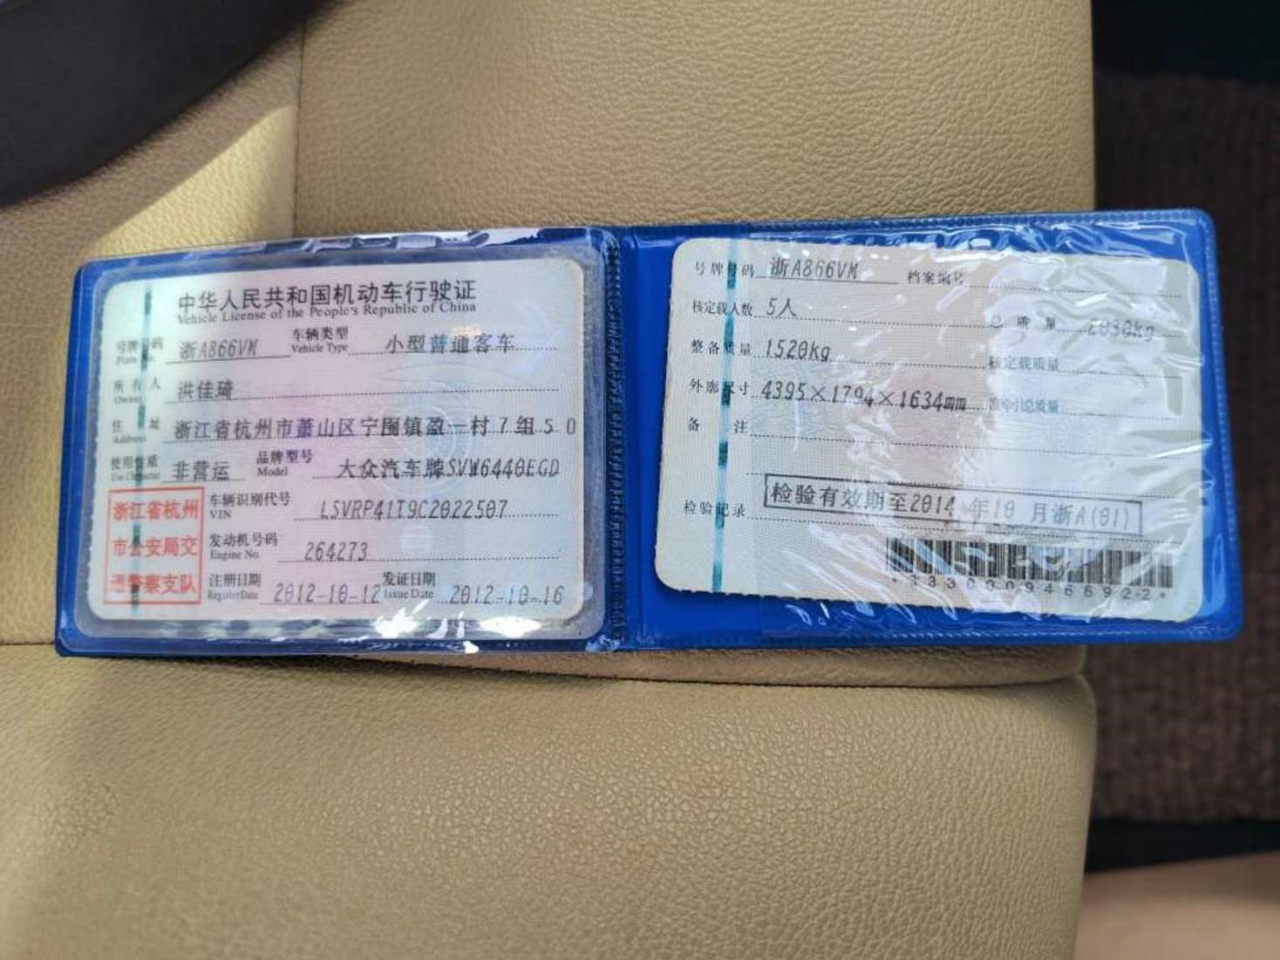 中华人民共和国机动车行驶证
Vehicle License of the People's Republic of China
号牌号码 浙A866VM 车辆类型 小型普通客车
Plate No. Vehicle Type
所有人 洪佳琦
Owner
住址 浙江省杭州市萧山区宁围镇盈一村7组50
Address
使用性质 非营运 品牌型号 大众汽车牌SVW6440EGD
Use Character Model
浙江省杭州
市公安局交
通警察支队
车辆识别代号 LSVRP41T9C2022507
VIN
发动机号码 264273
Engine No.
注册日期 2012-10-12 发证日期 2012-10-16
Register Date Issue Date
号牌号码 浙A866VM 档案编号
核定载人数 5人 总质量 2030kg
整备质量 1520kg 核定载质量
外廓尺寸 4395×1794×1634mm 准牵引总质量
备注
检验记录 检验有效期至2014年10月浙A(01)
*3330009466922*